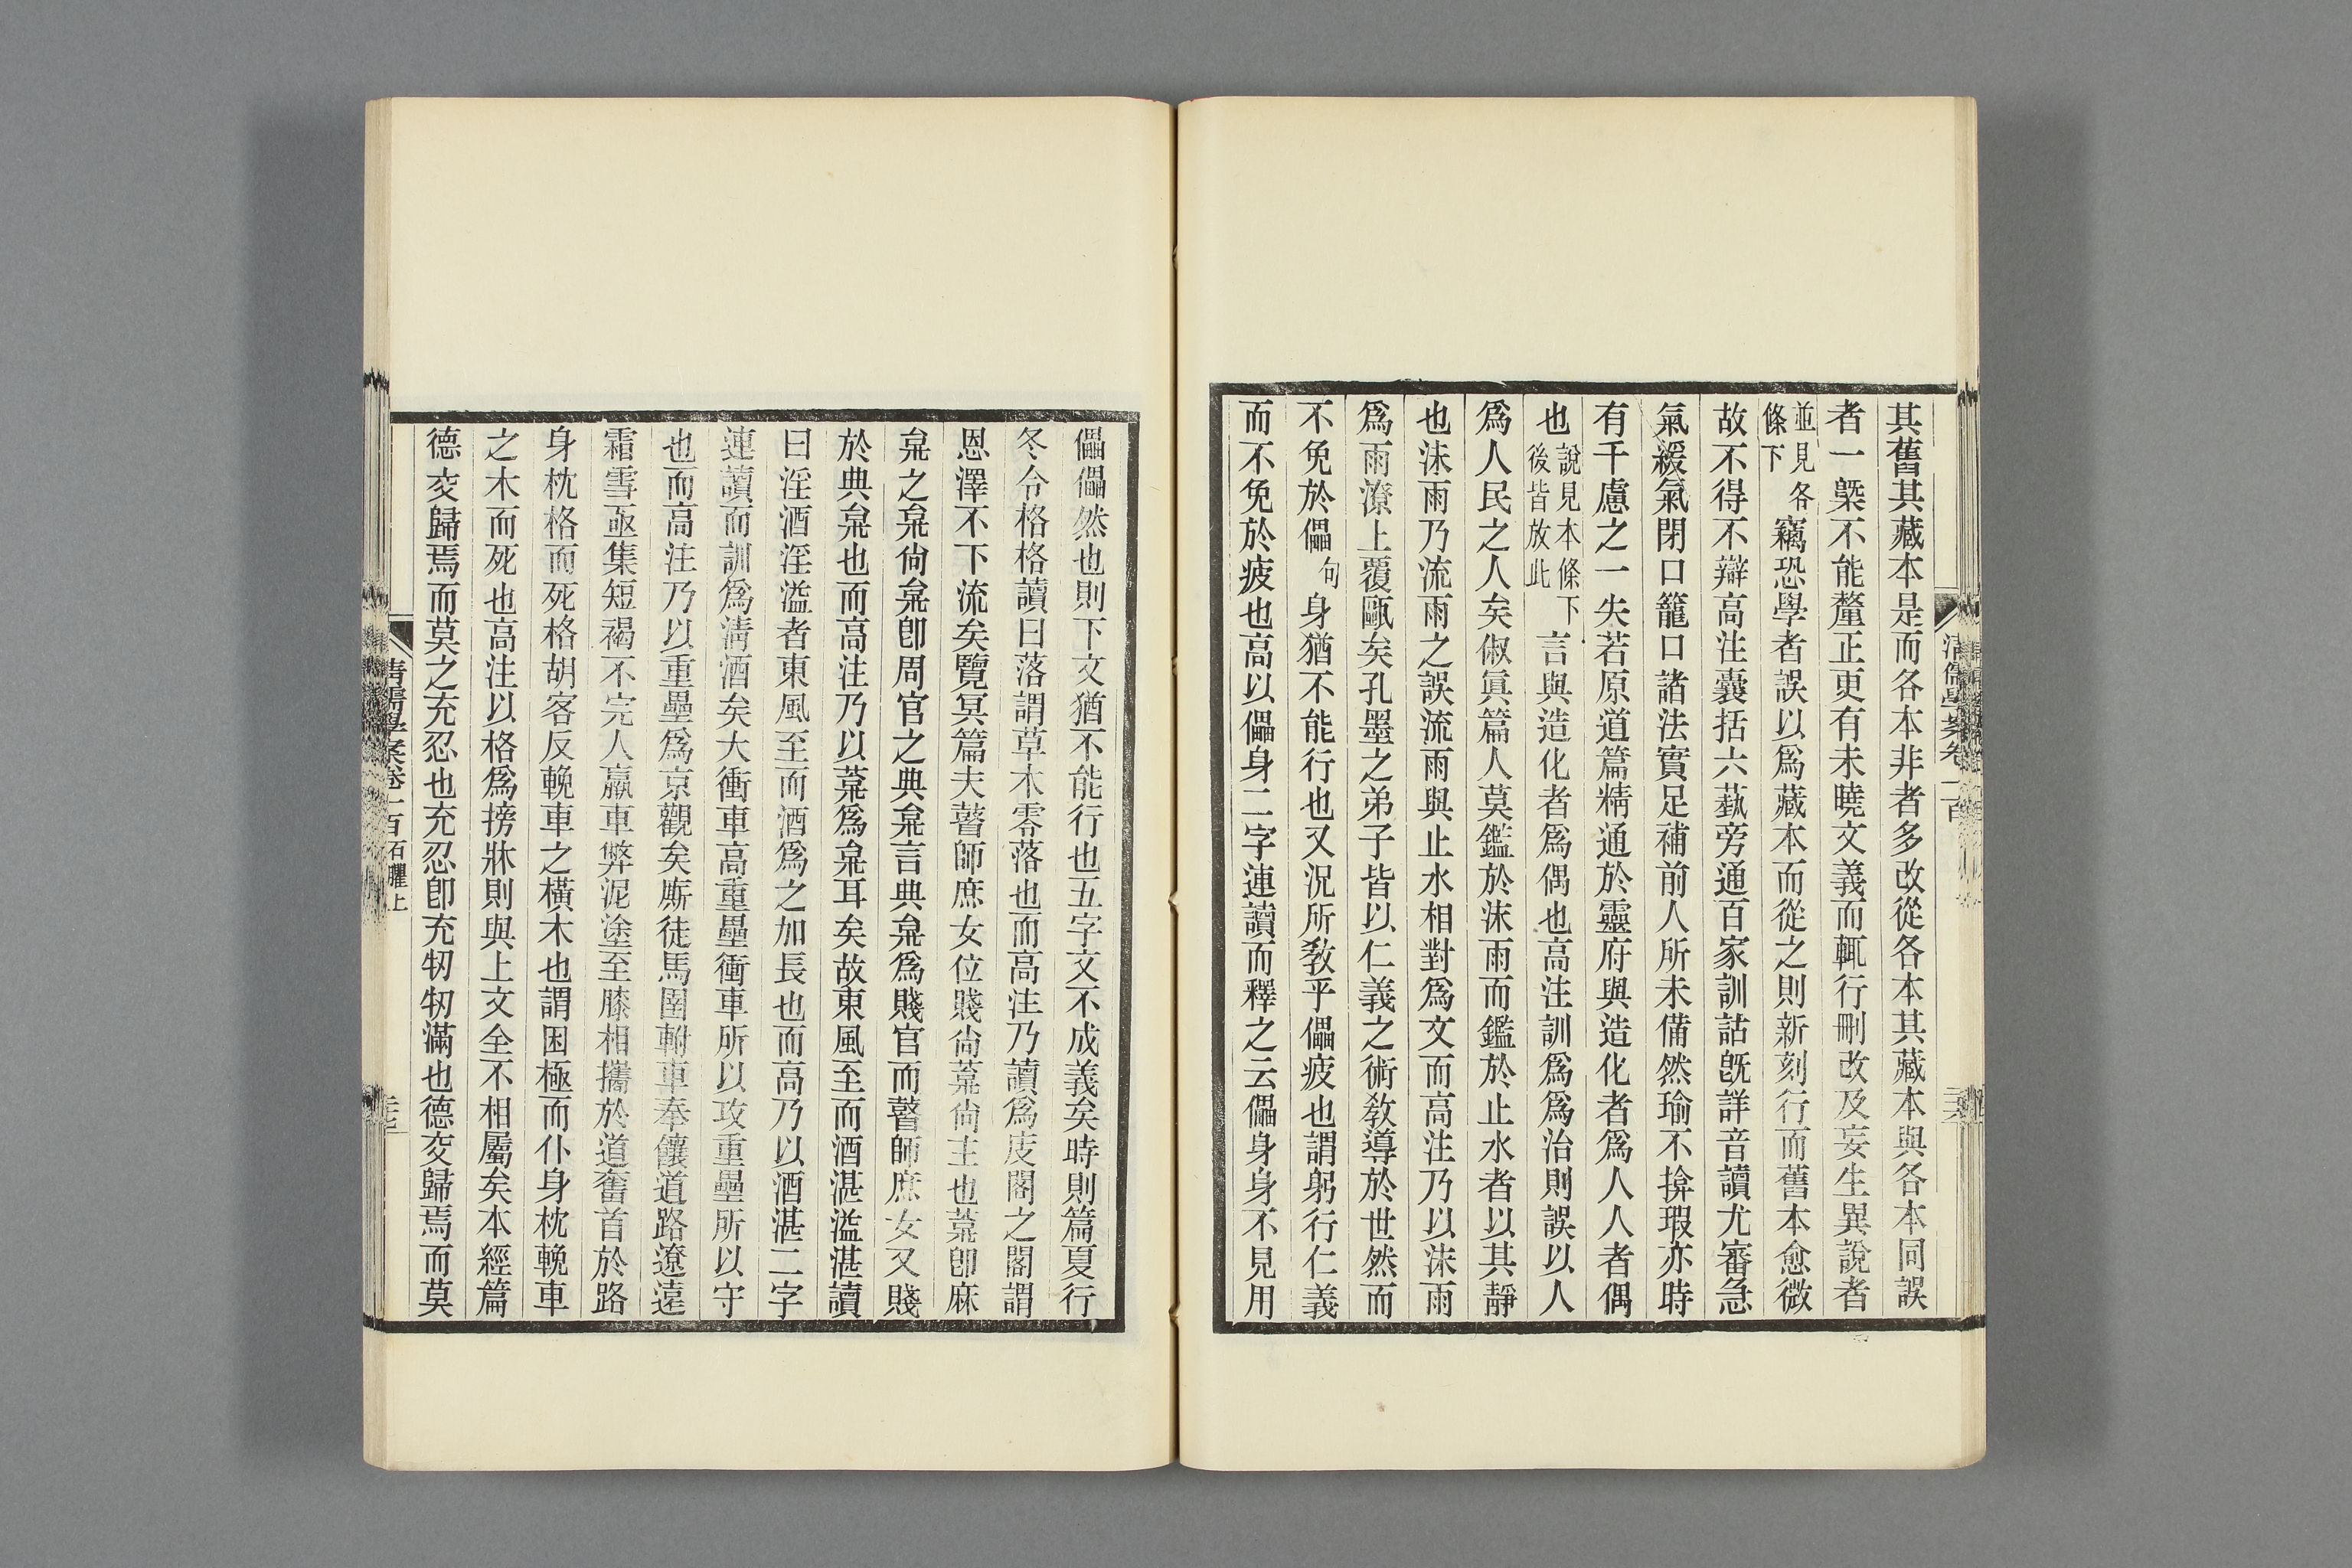 其舊其藏本是而各本非者多改從各本其藏本與各本同誤
者一槩不能釐正更有未曉文義而輒行刪改及妄生異說者
並見各
條下
竊恐學者誤以爲藏本而從之則新刻行而舊本愈微
故不得不辯高注囊括六蓺旁通百家訓詁旣詳音讀尤審急
氣緩氣閉口籠口諸法實足補前人所未備然瑜不揜瑕亦時
有千慮之一失若原道篇精通於靈府與造化者爲人人者偶
也
說見本條下
後皆放此
言與造化者爲偶也高注訓爲爲治則誤以人
爲人民之人矣俶眞篇人莫鑑於沫雨而鑑於止水者以其靜
也沫雨乃流雨之誤流雨與止水相對爲文而高注乃以沫雨
爲雨潦上覆甌矣孔墨之弟子皆以仁義之術敎導於世然而
不免於儡
句
身猶不能行也又況所敎乎儡疲也謂躬行仁義
而不免於疲也高以儡身二字連讀而釋之云儡身身不見用
清儒學案卷一百
儡儡然也則下文猶不能行也五字文不成義矣時則篇夏行
冬令格格讀曰落謂草木零落也而高注乃讀爲庋閣之閣謂
恩澤不下流矣覽冥篇夫瞽師庶女位賤尙葈尙主也葈卽麻
枲之枲尙枲卽周官之典枲言典枲爲賤官而瞽師庶女又賤
於典枲也而高注乃以葈爲枲耳矣故東風至而酒湛溢湛讀
曰淫酒淫溢者東風至而酒爲之加長也而高乃以酒湛二字
連讀而訓爲淸酒矣大衝車高重壘衝車所以攻重壘所以守
也而高注乃以重壘爲京觀矣廝徒馬圉軵車奉饟道路遼遠
霜雪亟集短褐不完人羸車弊泥塗至膝相攜於道奮首於路
身枕格而死格胡客反輓車之橫木也謂困極而仆身枕輓車
之木而死也高注以格爲搒牀則與上文全不相屬矣本經篇
德交歸焉而莫之充忍也充忍卽充牣牣滿也德交歸焉而莫
清儒學案卷一百 石臞上